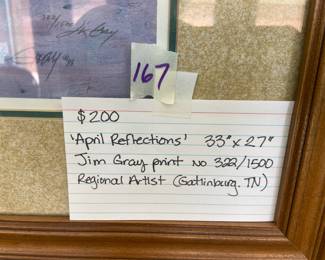 322/1500 Jim Gray
GRAY
167
$200
'April Reflections' 33" x 27"
Jim Gray print no 322/1500
Regional Artist (Gatlinburg, TN)